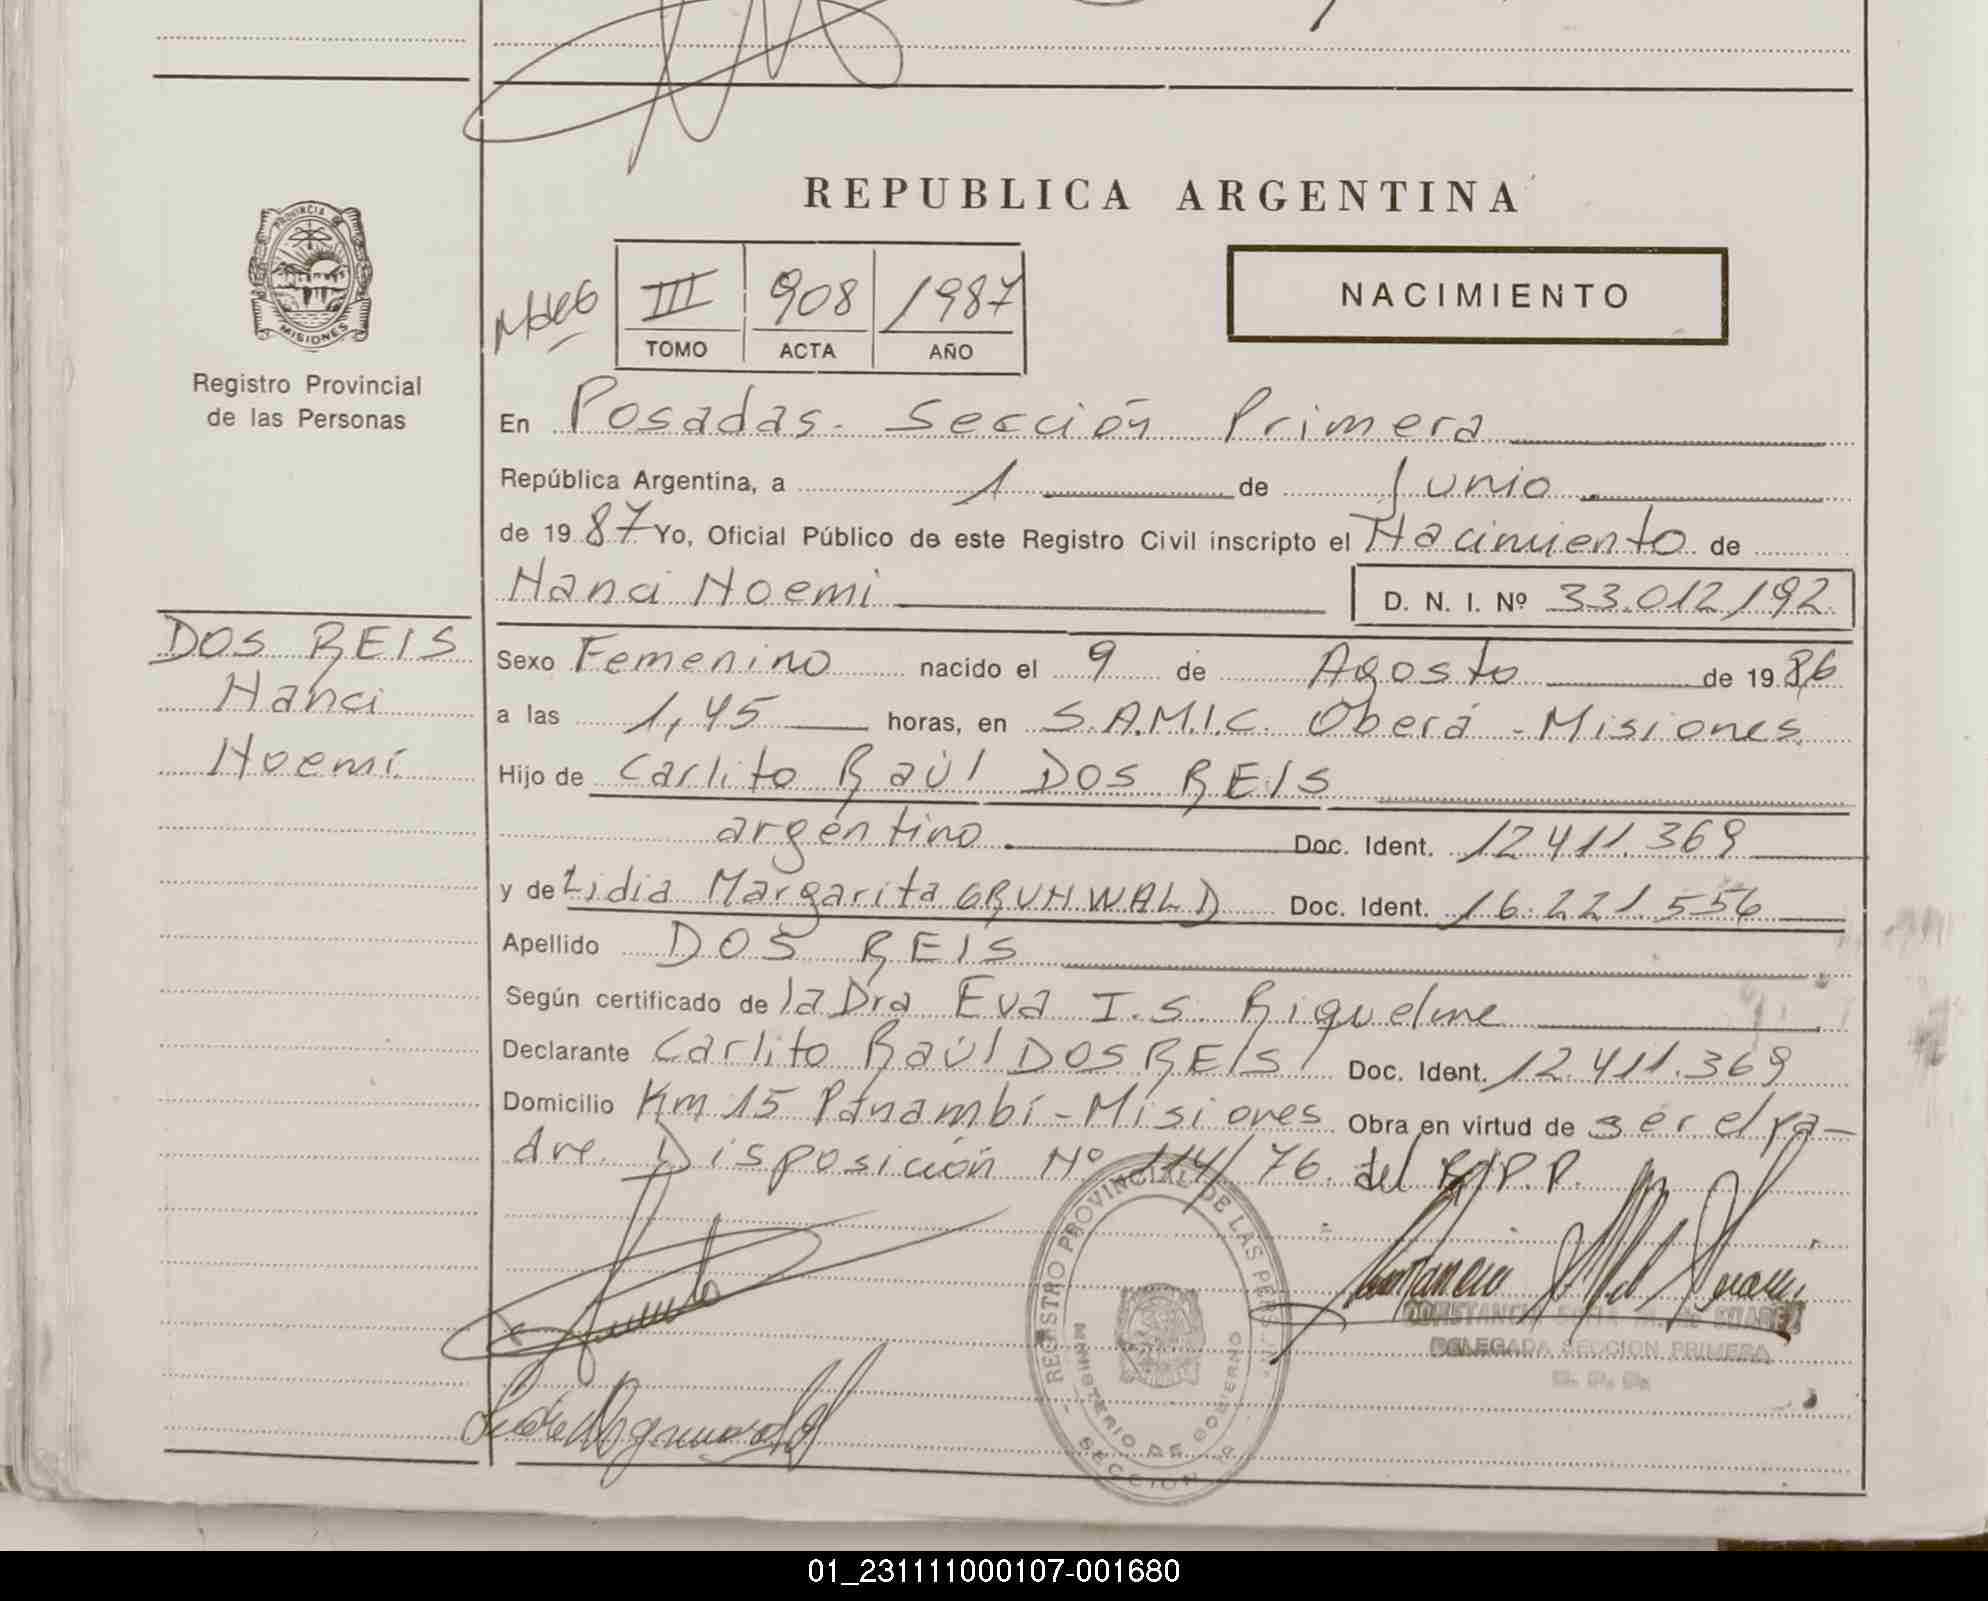 REPUBLICA ARGENTINA
PROVINCIA DE
MISIONES
Registro Provincial
de las Personas
III 908 1987
TOMO ACTA AÑO
NACIMIENTO
En Posadas - Sección Primera
República Argentina, a 1 de Junio
de 1987 Yo, Oficial Público de este Registro Civil inscripto el Nacimiento de
Nanci Noemi D. N. I. Nº 33.012.192
DOS REIS
Nanci
Noemí
Sexo Femenino nacido el 9 de Agosto de 1986
a las 1,45 horas, en S.A.M.I.C. Oberá - Misiones
Hijo de Carlito Raúl DOS REIS
argentino Doc. Ident. 12.411.369
y de Lidia Margarita GRUNWALD Doc. Ident. 16.221.556
Apellido DOS REIS
Según certificado de la Dra Eva I. S. Riquelme
Declarante Carlito Raúl DOS REIS Doc. Ident. 12.411.369
Domicilio Km 15 Panambí - Misiones Obra en virtud de ser el pa-
dre. Disposición Nº 114/76. del R.P.P.
REGISTRO PROVINCIAL DE LAS PERS.
MINISTERIO DE GOBIERNO
SECCION 1ª
DELEGADA SECCION PRIMERA
01_231111000107-001680